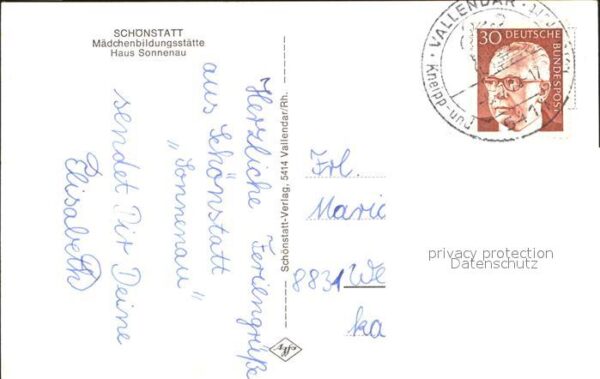 SCHÖNSTATT
Mädchenbildungsstätte
Haus Sonnenau
Herzliche Feriengrüße
aus Schönstatt
"Sonnenau"
sendet Dir Deine
Elisabeth
Schönstatt-Verlag, 5414 Vallendar/Rh.
VALLENDAR
Kneipp- und
5414
30 DEUTSCHE
BUNDESPOST
Frl.
Marie
8831 We
ka
privacy protection
Datenschutz